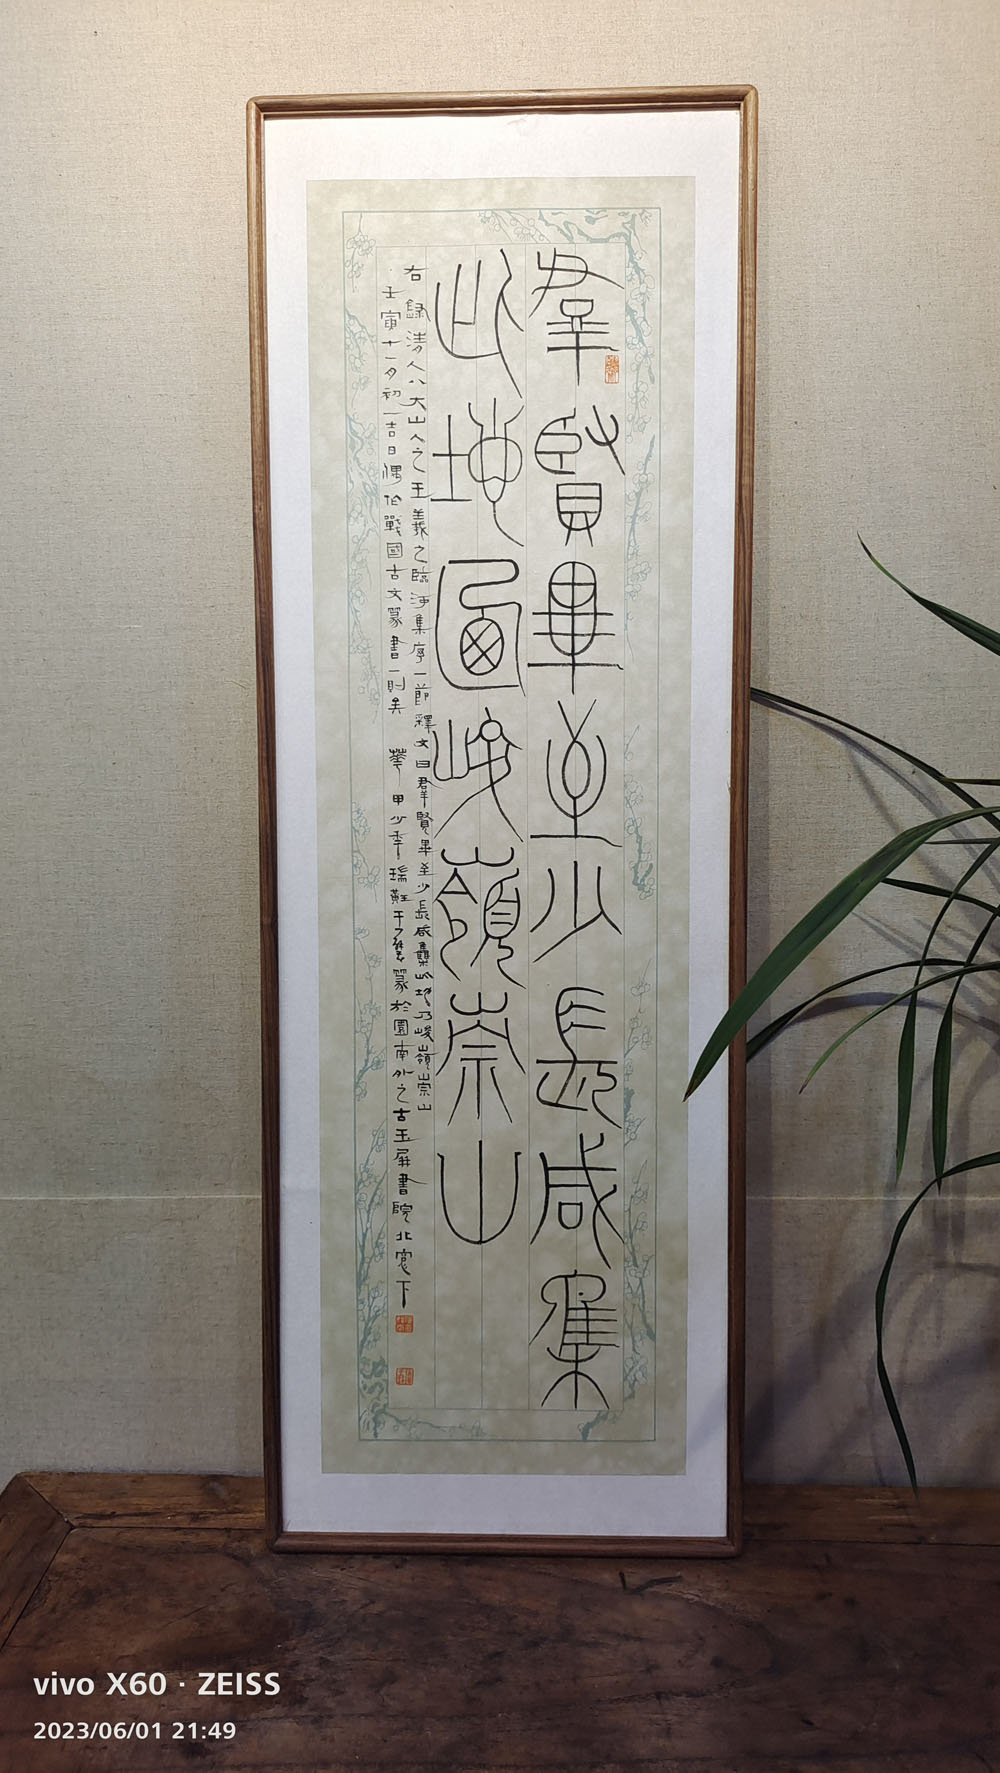 羣賢畢至少長咸集
此地迺峻嶺崇山
右錄清人八大山人之王羲之臨河集序一節釋文曰群賢畢至少長咸集此地乃峻嶺崇山
壬寅十一月初一吉日偶作戰國古文篆書一則 華甲少年瑞 篆於園南外之古玉屏書院北窗下
vivo X60 · ZEISS
2023/06/01 21:49